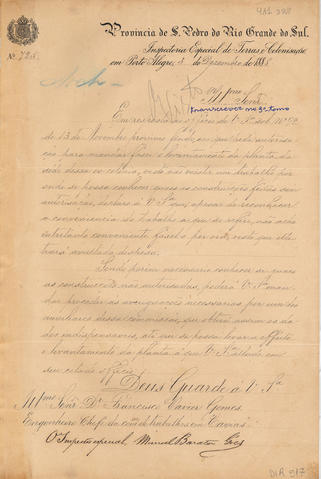 481 398
Provincia de S. Pedro do Rio Grande do Sul.
Inspectoria Especial de Terras e Colonisação
em Porto Alegre, 3 de Dezembro de 1888
Nº
Illmo Snr
transcrever
Em resposta ao officio de V. Sª sob Nº
de 13 de Novembro proximo findo, em que pede autorisa-
ção para mandar fazer o levantamento da planta da
séde dessa ex colonia, visto não existir um trabalho por
onde se possa conhecer quaes as construcções feitas sem
autorisação, declaro á V. Sª que, apezar de reconhecer
a conveniencia do trabalho a que se refere, não acho
entretanto conveniente fazel-o por ora, visto que elle
trará avultada despeza.
Sendo porem necessario conhecer-se quaes
as construcções não autorisadas, poderá V. Sª man-
dar proceder ás averiguações necessarias por um dos
auxiliares dessa commissão, que obterá assim os da-
dos indispensaveis, até que se possa levar a effeito
o levantamento da planta á que V. Sª allude em
seu citado officio.
Deus Guarde á V. Sª
Illmo Snr. Dr. Francisco Xavier Gomes.
Engenheiro Chefe da com. de trabalhos em Caxias
O Inspector especial, Manoel Barata Góes
DIR 917